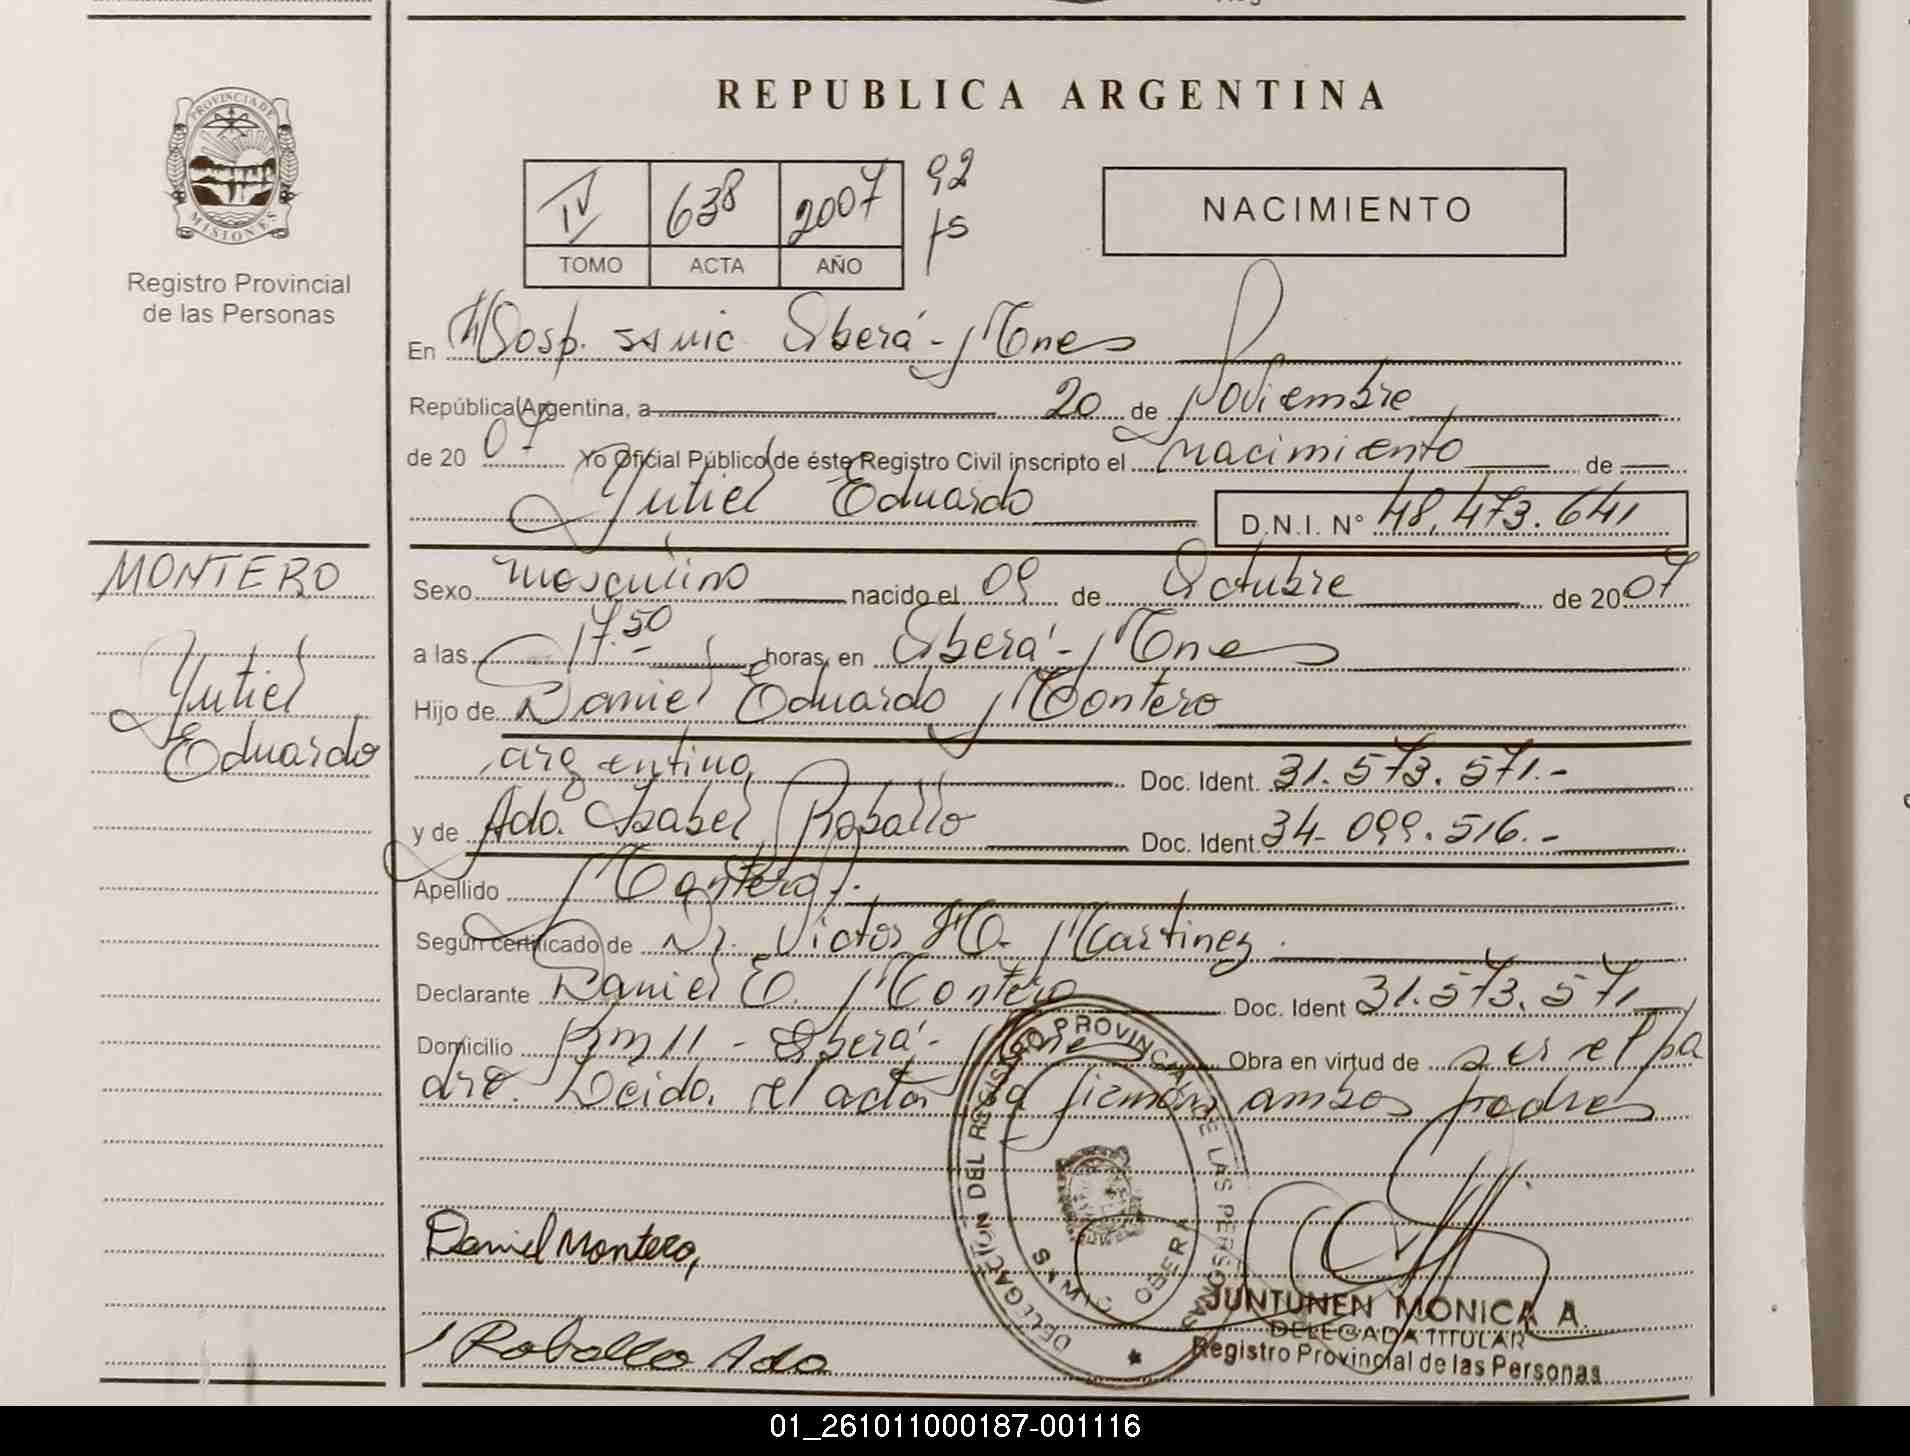 REPUBLICA ARGENTINA
PROVINCIA DE MISIONES
Registro Provincial
de las Personas
IV 638 2007 92
TOMO ACTA AÑO fs
NACIMIENTO
En Hosp. SAMIC Oberá - Mnes
República Argentina, a 20 de Noviembre
de 2007 Yo Oficial Público de éste Registro Civil inscripto el nacimiento de
Yutiel Eduardo D.N.I. N° 48.473.641
MONTERO
Yutiel
Eduardo
Sexo masculino nacido el 09 de Octubre de 2007
a las 17.50 horas, en Oberá - Mnes
Hijo de Daniel Eduardo Montero
argentino Doc. Ident. 31.573.571.-
y de Ada Isabel Roballo Doc. Ident. 34.099.516.-
Apellido Montero.
Según certificado de Dr. Victor H. Martinez.
Declarante Daniel E. Montero Doc. Ident 31.573.571
Domicilio Km 11 - Oberá - Mnes Obra en virtud de ser el pa
dre. Leida el acta la firman ambos padres
DELEGACION DEL REGISTRO PROVINCIAL DE LAS PERSONAS
OBERA
Daniel Montero,
Roballo Ada
JUNTUNEN MONICA A.
DELEGADA TITULAR
Registro Provincial de las Personas
01_261011000187-001116